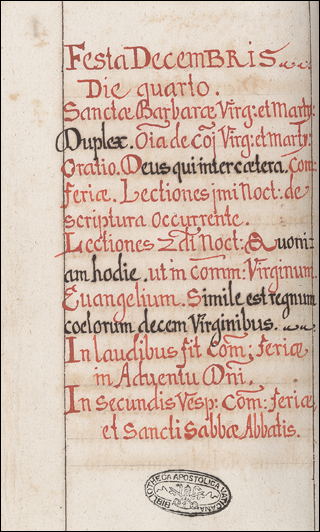 Festa Decembris.
Die quarto.
Sanctæ Barbaræ Virg: et Marty:
Duplex. Oīa de Coj Virg: et marty:
Oratio. Deus qui inter cætera. Com:
feriæ. Lectiones jmi Noct: de
scriptura occurrente.
Lectiones 2di Noct: Quoni=
am hodie. ut in comm: Virginum.
Euangelium. Simile est regnum
coelorum decem Virginibus.
In laudibus fit Com; feriæ
in Aduentu Dni.
In Secundis Vesp: Com: feriæ,
et Sancti Sabbæ Abbatis.
BIBLIOTHECA APOSTOLICA VATICANA